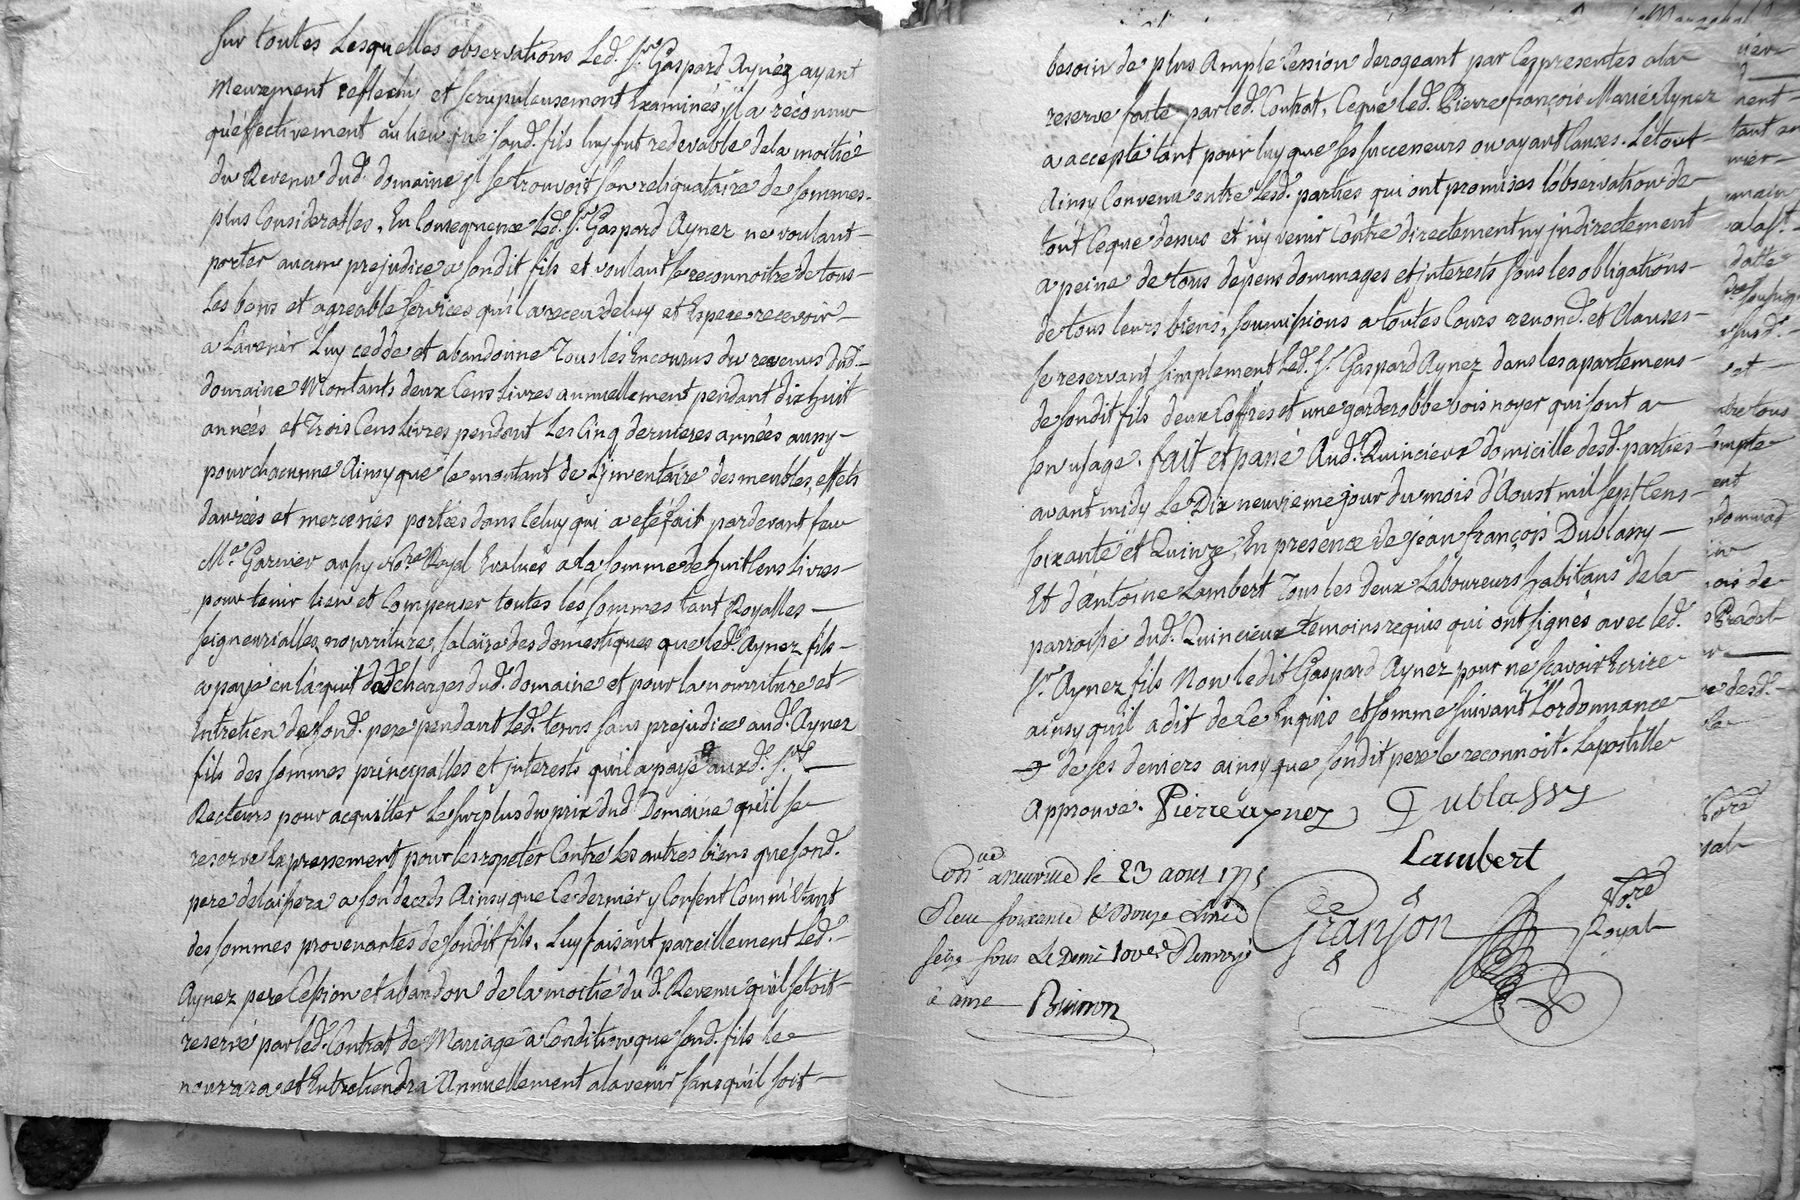 Sur toutes Lesquelles observations Led. Sr. Gaspard Aynéz ayant
Meurement reflechy et scrupuleusement Examinés, jl a reconnu
qu'éffectivement au lieu que sond. fils luy fut redevable de la moitié
du Revenu dud. domaine jl se trouvoit son reliquataire de sommes
plus Considerables, En Consequence Led. Sr. Gaspard Aynez ne voulant
porter aucun prejudice a sondit fils et voulant le reconnoitre de tous
Les bons et agreable services qu'il a receu de luy et Espere recevoir
a Lavenir Luy cedde et abandonne Tous les Encourus du revenus dud.
domaine Montants deux Cens Livres annuellement pendant dixhuit
années et Trois Cens Livres pendant Les Cinq dernieres années aussy
pour chacunne Ainsy que le montant de L'jnventaire des meubles, effets
danrées et merceries portées dans Celuy qui a eté fait pardevant feu
Me. Garnier aussy Nore. Royal Evalués a la somme de huit Cens Livres
pour tenir lieu et Compenser toutes les sommes tant Royalles
seigneurialles, nourriture, salaire des domestiques que led. Aynez fils
a payé en l'acquit des charges dud. domaine et pour la nourriture et
Entretien de sond. pere pendant led. tems sans prejudice aud. Aynez
fils des sommes principalles et jnterests qu'il a payé auxd. Srs.
Recteurs pour acquitter Le surplus du prix dud. Domaine qu'il se
reserve Expressement pour les repeter Contre Les autres biens que sond.
pere delaissera a son deceds Ainsy que Ce dernier y Consent Comm'Etant
des sommes provenantes de sondit fils, Luy faisant pareillement Led.
Aynez pere Cession et abandon de la moitié dud. Revenu qu'il s'etoit
reservé par led. Contrat de Mariage a Condition que sond. fils le
nourrira et Entretiendra Annuellement a lavenir sans qu'il soit
besoin de plus Ample Cession derogeant par Ces presentes a la
reserve faite par led. Contrat, Ce que led. Pierre françois Marie Aynez
a accepté tant pour luy que ses successeurs ou ayant Causes. Le tout
Ainsy Convenu entre Lesd. parties qui ont promises l'observation de
tout Ce que dessus et n'y venir Contre directement ny jndirectement
a peine de tous depens dommages et jnterests sous les obligations
de tous leurs biens, soumissions a toutes Cours renond. et Clauses
se reservant simplement Led. Sr. Gaspard Aynez dans les apartemens
de sondit fils deux Coffres et une garderobbe bois noyer qui sont a
son usage. fait et passé Aud. Quincieux domicille desd. parties
avant midy Le Dix neuvieme jour du mois d'Aoust mil sept Cens
soixante et Quinze, En presence de jean françois Dublassy
Et d'antoine Lambert Tous les deux Laboureurs habitans de la
parroisse dud. Quincieux temoins requis qui ont signés avec led.
Sr. Aynez fils Non ledit Gaspard Aynez pour ne sçavoir Ecrire
ainsy qu'il a dit de Ce Enquis et sommé suivant L'ordonnance
de ses deniers ainsy que sondit pere le reconnoit. Lapostille
Approuvé. Pierre aynez Dublassy
Lambert
le 23 aout 1775
Granjon Nore. Royal